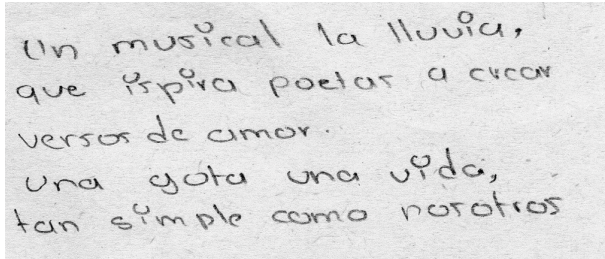 Un musical la lluvia,
que ispira poetas a crear
versos de amor.
una gota una vida,
tan simple como nosotros